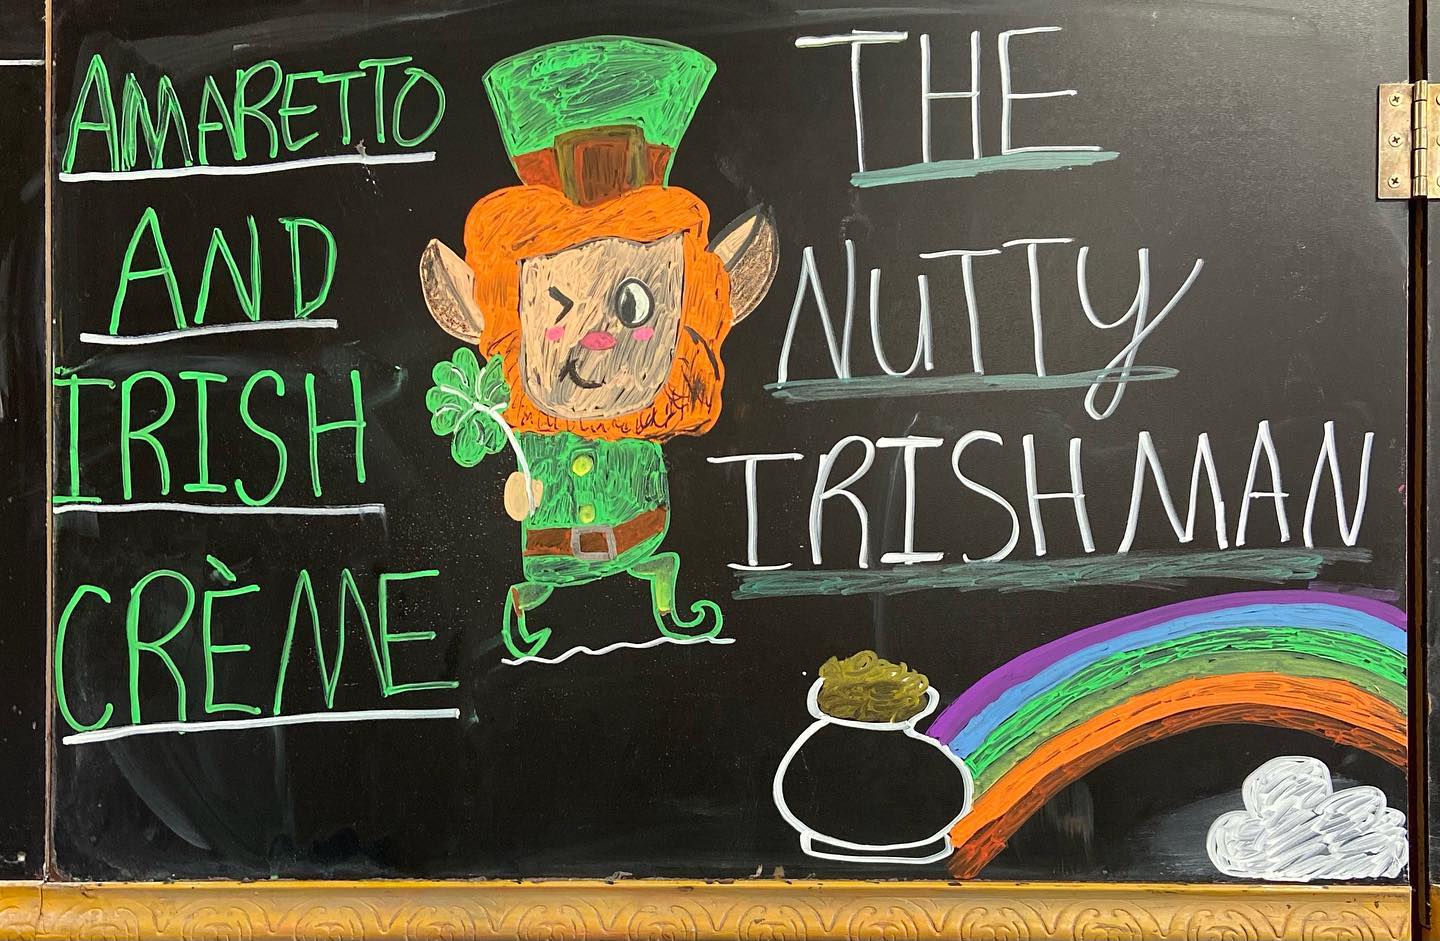 AMARETTO
AND
IRISH
CRÈME
THE
NUTTY
IRISHMAN